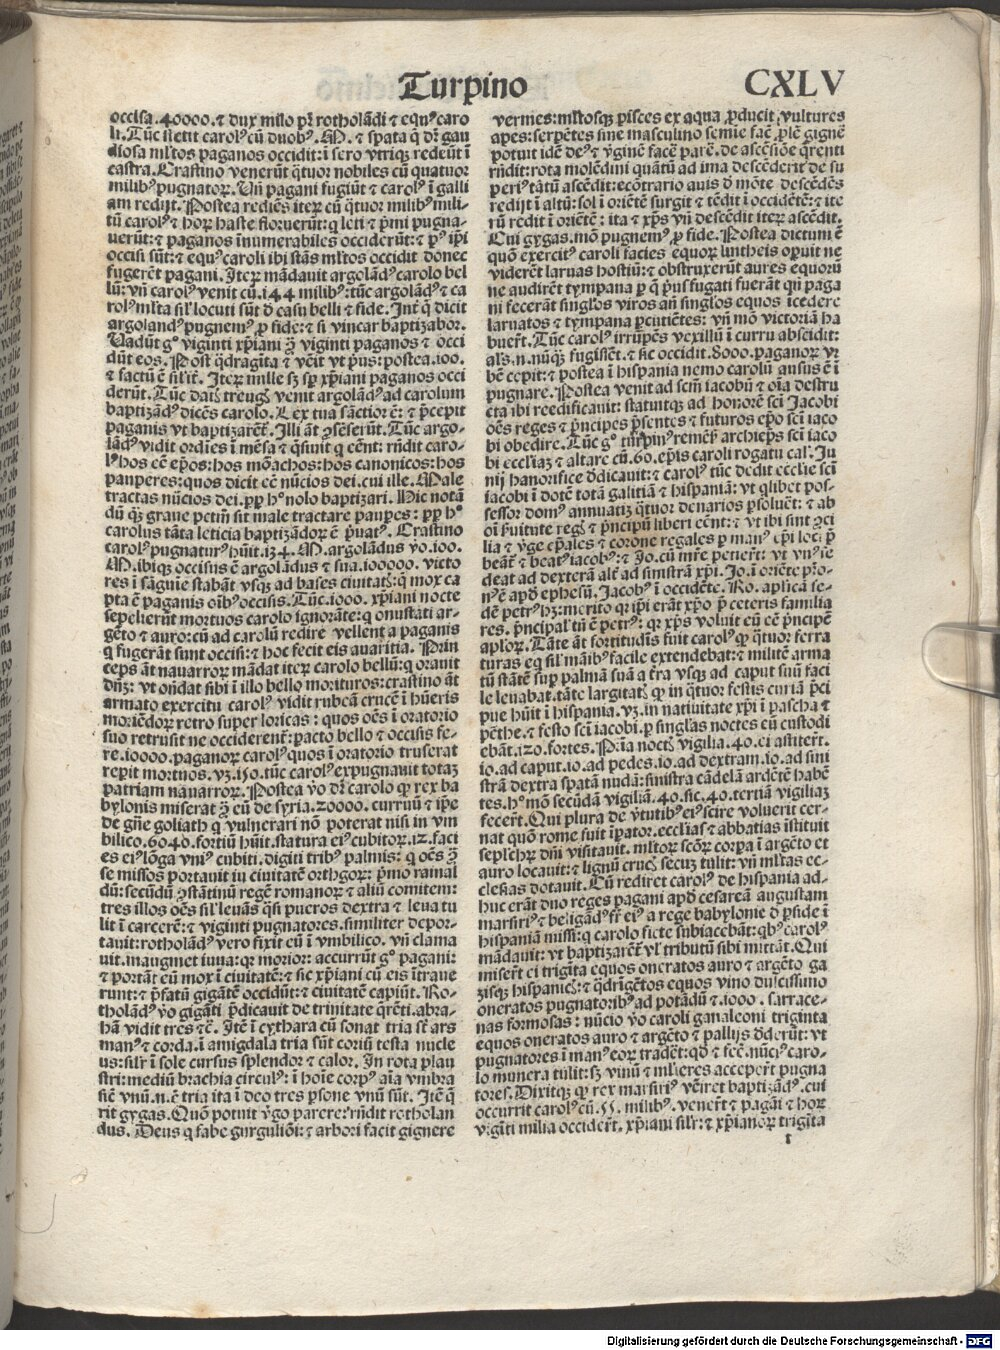 Turpino
CXLV
occisa.40000.⁊ dux milo pr̄ rotholādi ⁊ equꝰ caro
li.Tūc stetit carolꝰ cū duobꝰ.M. ⁊ spata q̄ dr̄ gau
diosa mltos paganos occidit:ī sero vtriqꝫ redeūt ī
castra.Crastino venerūt q̄tuor nobiles cū quatuor
milibꝰ pugnatoꝝ.Vn̄ pagani fugiūt ⁊ carolꝰ ī galli
am redijt.Postea rediēs iteꝝ cū q̄tuor milibꝰ mili-
tū carolꝰ ⁊ hoꝝ haste floruerūt:q leti ⁊ p̄mi pugna-
verūt:⁊ paganos inumerabiles occiderūt:⁊ pꝰ ip̄i
occisi sūt:⁊ equꝰ caroli ibi stās mltos occidit donec
fugerēt pagani.Iteꝝ mādauit argolādꝰ carolo bel
lū:vn̄ carolꝰ venit cū.144 milibꝰ:tūc argolādꝰ ⁊ ca
rolꝰ mlta sil’locuti sūt d̄ casu belli ⁊ fide.Int̄ q̄ dicit
argolandꝰ pugnemꝰ ꝓ fide:⁊ si vincar baptizabor.
Vadūt gͦ viginti xp̄iani ꝯ̄ viginti paganos ⁊ occi
dūt eos.Post q̄dragīta ⁊ vēit vt pͥus:postea.100.
⁊ factū ē sil’it̄.Iteꝝ mille sꝫ sp̄ xp̄iani paganos occi
derūt.Tūc datꝭ treugꝭ venit argolādꝰ ad carolum
baptizādꝰ dicēs carolo.Lex tua sāctior ē:⁊ p̄cepit
paganis vt baptizarēt̄.Illi āt ꝯsēserūt.Tūc argo-
lādꝰ vidit ordīes ī mēsa ⁊ q̄siuit q̄ eēnt:rn̄dit caro-
lꝰ hos eē ep̄os:hos mōachos:hos canonicos:hos
pauperes:quos dicit eē nūcios dei.cui ille.Male
tractas nūcios dei.ꝓp hͦ nolo baptizari.Hic notā
dū qͣꝫ graue petm̄ sit male tractare paupes:ꝓp hͦ
carolus tāta leticia baptizādoꝝ ē pͥuatꝰ.Crastino
carolꝰ pugnaturꝰ hūit.134.M.argolādus vͦo.100.
M.ibiqꝫ occisus ē argolādus ⁊ sua.100000.victo
res ī sāguīe stabāt vsqꝫ ad bases ciuitatꝭ:q̄ mox ca
pta ē paganis oībꝰ occisis.Tūc.1000.xp̄iani nocte
sepelierūt mortuos carolo ignorāte:q onustati ar-
gēto ⁊ auro:cū ad carolū redire vellent a paganis
q fugerāt sunt occisi:⁊ hoc fecit eis auaritia.Prin
ceps āt nauarroꝝ mādat iteꝝ carolo bellū:q orauit
dn̄ꝫ:vt on̄dat sibi ī illo bello morituros:crastino āt
armato exercitu carolꝰ vidit rubeā crucē ī hūeris
moriēdoꝝ retro super loricas:quos oēs ī oratorio
suo retrusit ne occiderent̄:pacto bello ⁊ occisis fe-
re.10000.paganoꝝ carolꝰ quos ī oratorio truserat
repit mortuos.vꝫ.150.tūc carolꝰ expugnauit totaꝫ
patriam nauarroꝝ.Postea vͦo dr̄ carolo qꝙ rex ba
bylonis miserat ꝯ̄ eū de syria.20000.curruū ⁊ ip̄e
de gn̄e goliath q vulnerari nō poterat nisi in vm
bilico.6040.fortiū hūit.statura eiꝰ cubitoꝝ.12.faci
es eiꝰ lōga vniꝰ cubiti.digiti tribꝰ palmis:q oēs ꝯ̄
se missos portauit iu ciuitatē orthgoꝝ:pͥmo rainal
dū:secūdū ꝯstātinū regē romanoꝝ ⁊ aliū comitem:
tres illos oēs sil’leuās q̄si pueros dextra ⁊ leua tu
lit ī carcerē:⁊ viginti pugnatores.similiter depor-
tauit:rotholādꝰ vero fixit eū ī vmbilico.vn̄ clama
uit.maugmet iuua:qꝛ morior:accurrūt gͦ pagani:
⁊ portāt eū mox ī ciuitatē:⁊ sic xp̄iani cū eis ītraue
runt:⁊ p̄fatū gigātē occidūt:⁊ ciuitatē capiūt.Ro-
tholādꝰ vͦo gigāti p̄dicauit de trinitate q̄rēti.abra-
hā vidit tres ⁊c̄.Itē ī cythara cū sonat tria st̄ ars
manꝰ ⁊ corda.ī amigdala tria sūt coriū testa nucle
us:silr̄ ī sole cursus splendor ⁊ calor.In rota plau
stri:mediū brachia circulꝰ:ī hoīe corpꝰ aīa vmbra
sic̄ vnū.n.ē tria ita ī deo tres ꝑsone vnū sūt.Itē q̄
rit gygas.Quō potuit vͦgo parere:rn̄dit rotholan
dus.Deus q fabe gurguliōi:⁊ arbori facit gignere
vermes:mltosqꝫ pisces ex aqua ꝓducit,vultures
apes:serpētes sine masculino semie facē ꝓlē gignē
potuit idē deꝰ ⁊ vͥginē facē parē.de ascēsiōe q̄renti
rn̄dit:rota molēdini quātū ad ima descēderit de su
periꝰ tātū ascēdit:ecōtrario auis d̄ mōte descēdēs
redijt ī altū:sol ī oriētē surgit ⁊ tēdit ī occidētē:⁊ ite
rū redit ī oriētē:ita ⁊ xp̄s vn̄ descēdit iteꝝ ascēdit.
Cui gygas.mō pugnemꝰ ꝓ fide.Postea dictum ē
quō exercitꝰ caroli facies equoꝝ lintheis opuit ne
viderēt laruas hostiū:⁊ obstruxerūt aures equorū
ne audirēt tympana ꝑ q̄ pͥus fugati fuerāt qn̄ paga
ni fecerāt singl’os viros an̄ singl’os equos icedere
laruatos ⁊ tympana ꝑcutiētes:vn̄ mō victoriā ha
buerт̄.Tūc carolꝰ irrūpēs vexillū ī curru abscidit:
als.n.nūqꝫ fugissēt.⁊ sic occidit.8000.paganoꝝ vr
bē cepit:⁊ postea ī hispania nemo carolū ausus ē ī
pugnare.Postea venit ad scm̄ iacobū ⁊ oīa destru
cta ibi reedificauit:statuitqꝫ ad honorē sci Jacobi
oēs reges ⁊ p̄ncipes p̄sentes ⁊ futuros ep̄o sci iaco
bi obedire.Tūc gͦ turpinꝰ remēsꝭ archiep̄s sci iaco
bi eccl’iaꝫ ⁊ altare cū.60.ep̄is caroli rogatu cal’.Ju
nij hanorifice d̄dicauit:⁊ carolꝰ tūc dedit eccl’ie sci
iacobi ī dotē totā galitiā ⁊ hispaniā:vt q̄libet pos-
sessor domꝰ annuatiꝫ q̄tuor denarios ꝑsoluēt:⁊ ab
oī ẜuitute regꝭ ⁊ p̄ncipū liberi eēnt:⁊ vt ibi sint ꝯci
lia ⁊ vͥge ep̄ales ⁊ corone regales ꝑ manꝰ ep̄i loci p̄
beāt̄ ⁊ beatꝰ iacobꝰ:⁊ Jo.cū mr̄e peteт̄:vt vnꝰ se
deat ad dexterā alt̄ ad sinistrā xp̄i.Jo.ī oriēte pͥo-
nꝰ ē apd̄ ephesū.Jacobꝰ ī occidēte.Ro.aplicā se-
dē petrꝰ hꝫ:merito qꝛ ip̄i erāt xp̄o p̄ ceteris familia
res.p̄ncipal’tn̄ ē petrꝰ:qꝛ xp̄s voluit eū eē p̄ncipē
aploꝝ.Tāte āt fortitudīs fuit carolꝰ qꝙ q̄tuor ferra
turas eq̄ sil’māibꝰ facile extendebat:⁊ militē arma
tū stātē sup palmā suā a t̄ra vsqꝫ ad caput suū faci
le leuabat.tāte largitatꝭ qꝙ in q̄tuor festis curiā p̄ci
pue hūit ī hispania.vꝫ.in natiuitate xp̄i ī pascha ⁊
pēthe.⁊ festo sci iacobi.ꝑ singl’as noctes eū custodi
ebāt.120.fortes.Pͥma noctꝭ vigilia.40.ei astiterт̄.
10.ad caput.10.ad pedes.10.ad dextram.10.ad sini
strā dextra spatā nudā:sinistra cādelā ardētē habē
tes.hͦ mō secūdā vigiliā.40.sic.40.tertiā vigiliaꝫ
feceт̄.Qui plura de vͥtutibꝰ eiꝰ scire voluerit cer-
nat quō rome fuit īpator.eccl’ias ⁊ abbatias īstituit
sepl’cheꝝ dn̄i visitauit.mltoꝝ scōꝝ corpa ī argēto et
auro locauit:⁊ lignū crucꝭ secuꝫ tulit:vn̄ mltas ec-
clesias dotauit.Cū rediret carolꝰ de hispania ad-
huc erāt duo reges pagani apd̄ cesareā augustam
marsiriꝰ ⁊ beligādꝰ fr̄ eiꝰ a rege babylonie d̄ ꝑside ī
hispaniā missi:q carolo ficte subiacebāt:qͥbꝰ carolꝰ
mādauit:vt baptizarēt̄ vl’ tributū sibi mittāt.Qui
miseт̄ ei trigīta equos oneratos auro ⁊ argēto ga
zisqꝫ hispanicꝭ:⁊ q̄drīgētos equos vino dulcissimo
oneratos pugnatoribꝰ ad potādū ⁊.1000.sarrace-
nas formosas:nūcio vͦo caroli ganaleoni triginta
equos oneratos auro ⁊ argēto ⁊ pallijs d̄derūt:vt
pugnatores ī manꝰ eoꝝ tradēt:qd̄ ⁊ fec̄.nūciꝰ caro-
lo munera tulit:sꝫ vinū ⁊ ml’ieres accepeт̄ pugna
tores.Dixitqꝫ qꝙ rex marsiriꝰ vēiret baptizādꝰ.cui
occurrit carolꝰ cū.55.milibꝰ.veneт̄ ⁊ pagāi ⁊ hoꝝ
vigīti milia occideт̄.xp̄iani silr̄:⁊ xp̄ianoꝝ trigīta
r
Digitalisierung gefördert durch die Deutsche Forschungsgemeinschaft - DFG